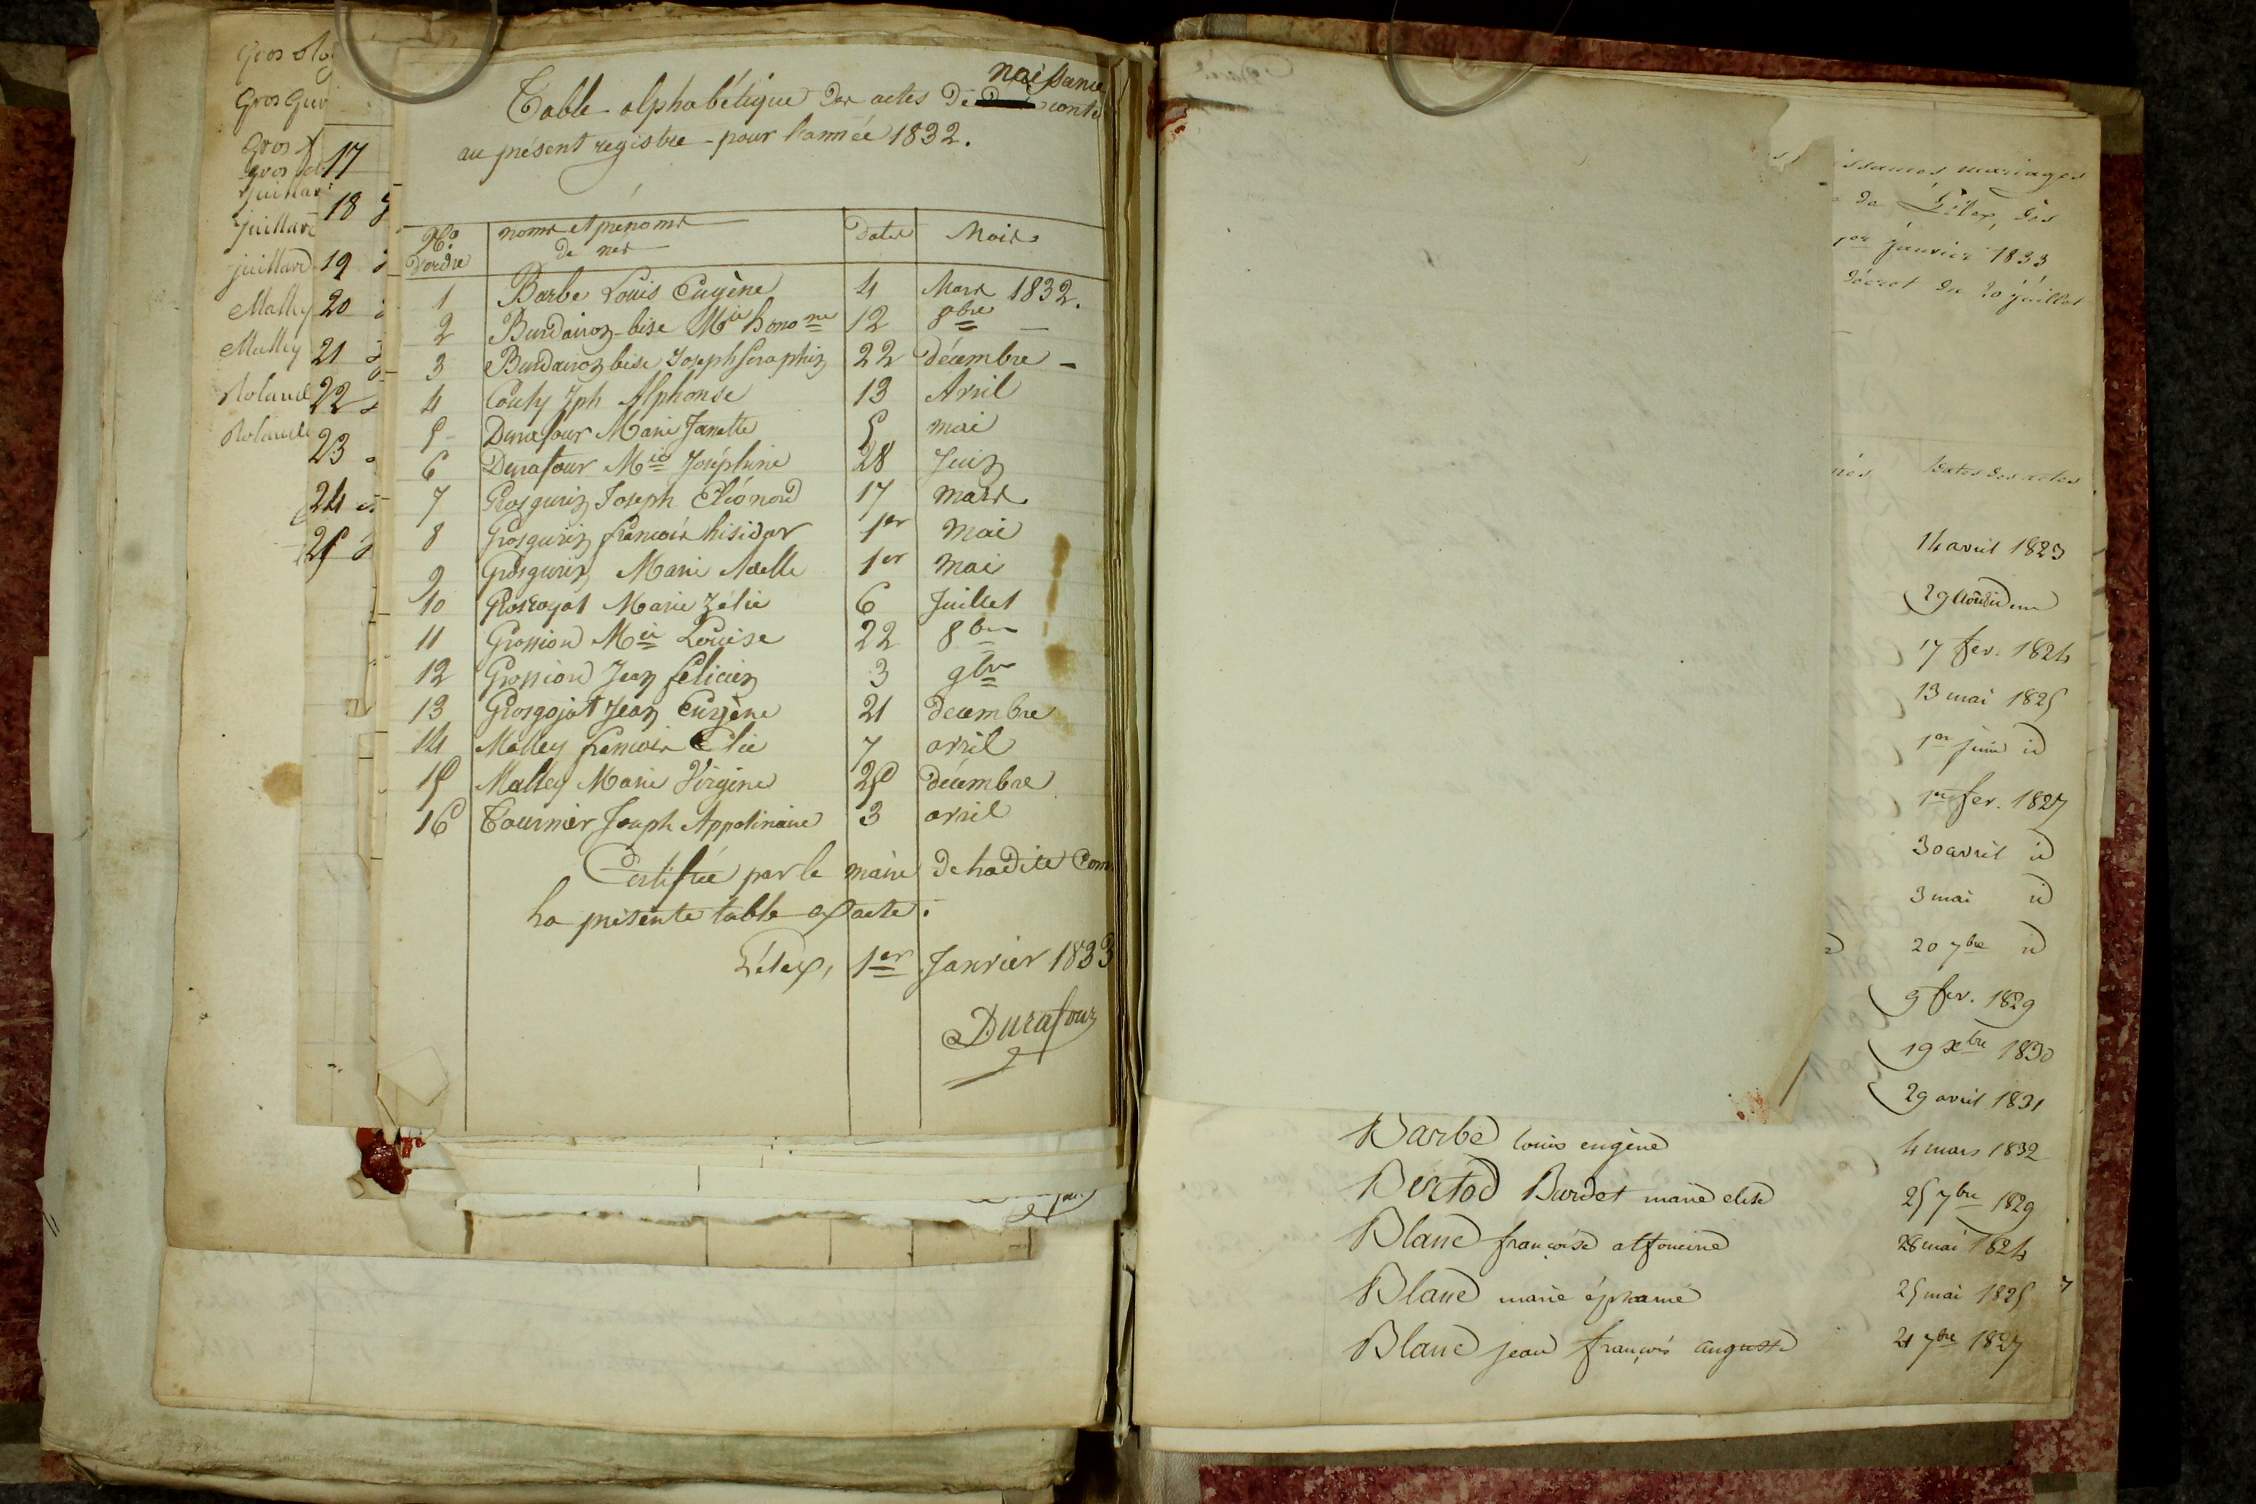 Table alphabétique des actes de naissance
au présent registre pour l'année 1832.
No d'ordre noms et prénoms de nés Dates Mois
1 Barbe Louis Eugène 4 Mars 1832.
2 Burdairoz-bise Mie honone 12 8bre
3 Burdairoz bise Joseph Seraphin 22 décembre
4 Couty Jph Alphonse 13 Avril
5 Durafour Marie Janette 5 mai
6 Durafour Mie Joséphine 28 Juin
7 Grosgurin Joseph Eléonord 17 mars
8 Grosgurin francois hisidor 1er mai
9 Grosgurin Marie Adelle 1er mai
10 Marie Zélie 6 Juillet
11 Grossiord Mie Louise 22 8bre
12 Grossiord Jean felicien 3 9bre
13 Grosgojat Jean Eugène 21 decembre
14 Malley francois Elie 7 avril
15 Malley Marie Virgine 25 décembre
16 Tournier Joseph Appolinaire 3 avril
Certifiée par le maire de ladite Com
la présente table exacte.
Lélex, 1er Janvier 1833
Durafour
gros
gros gur
gros
juillard
juillard
Malley
Malley
Roland
Roland
17
18
19
20
21
22
23
24
25
issances mariages
de Lélex, dès
1er janvier 1833
décret du 20 juillet
Dates des actes
14 avril 1823
29
17 fev. 1824
13 mai 1825
1er juin id
1er fev. 1827
30 avril id
3 mai id
20 7bre id
9 fev. 1829
19 Xbre 1830
29 avril 1831
Barbe louis eugène 4 mars 1832
Bertod Burdet marie elise 25 7bre 1829
Blanc françoise alfonsine 28 mai 1824
Blanc marie 25 mai 1825
Blanc jean françois auguste 21 7bre 1827